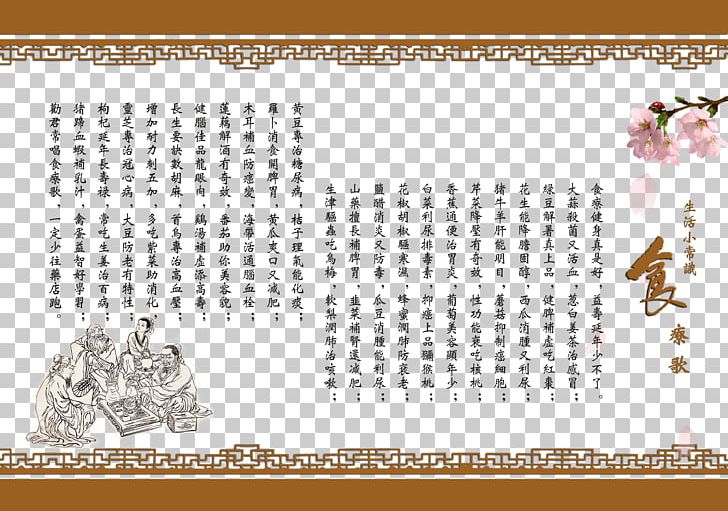 生活小常識
食
療歌
食療健身真是好，益壽延年少不了。
大蒜殺菌又活血，蔥白姜茶治感冒；
綠豆解暑真上品，健脾補虛吃紅棗；
花生能降膽固醇，西瓜消腫又利尿；
豬牛羊肝能明目，蘑菇抑制癌細胞；
芹菜降壓有奇效，性功能衰吃核桃；
香蕉通便治胃炎，葡萄美容顯年少；
白菜利尿排毒素，抑癌上品獼猴桃；
花椒胡椒驅寒濕，蜂蜜潤肺防衰老；
鹽醋消炎又防毒，瓜豆消腫能利尿；
山藥擅長補脾胃，韭菜補腎還減肥；
生津驅蟲吃烏梅，軟梨潤肺治咳嗽；
黃豆專治糖尿病，桔子理氣能化痰；
蘿卜消食開脾胃，黃瓜爽口又減肥；
木耳補血防癌變，海帶活通腦血栓；
蓮藕解酒有奇效，番茄助你美容貌；
健腦佳品龍眼肉，鷄湯補虛添高壽；
長生要訣數胡麻，首烏專治高血壓；
增加耐力刺五加，多吃紫菜助消化，
靈芝專治冠心病，大豆防老有特性；
枸杞延年長壽祿，常吃生姜治百病；
豬蹄血蝦補乳汁，禽蛋益智好學習；
勸君常唱食療歌，一定少往藥店跑。